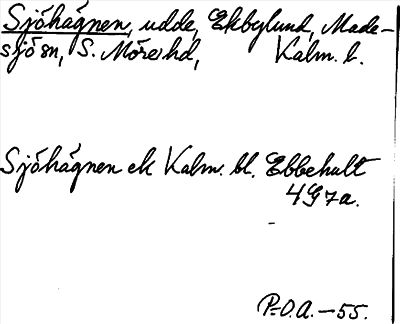 Sjöhägnen, udde, Ekbylund, Made-
sjö sn, S. Möre hd, Kalm. l.
Sjöhägnen ek Kalm. bl. Ebbehult
4G7a.
P.O.A.-55.